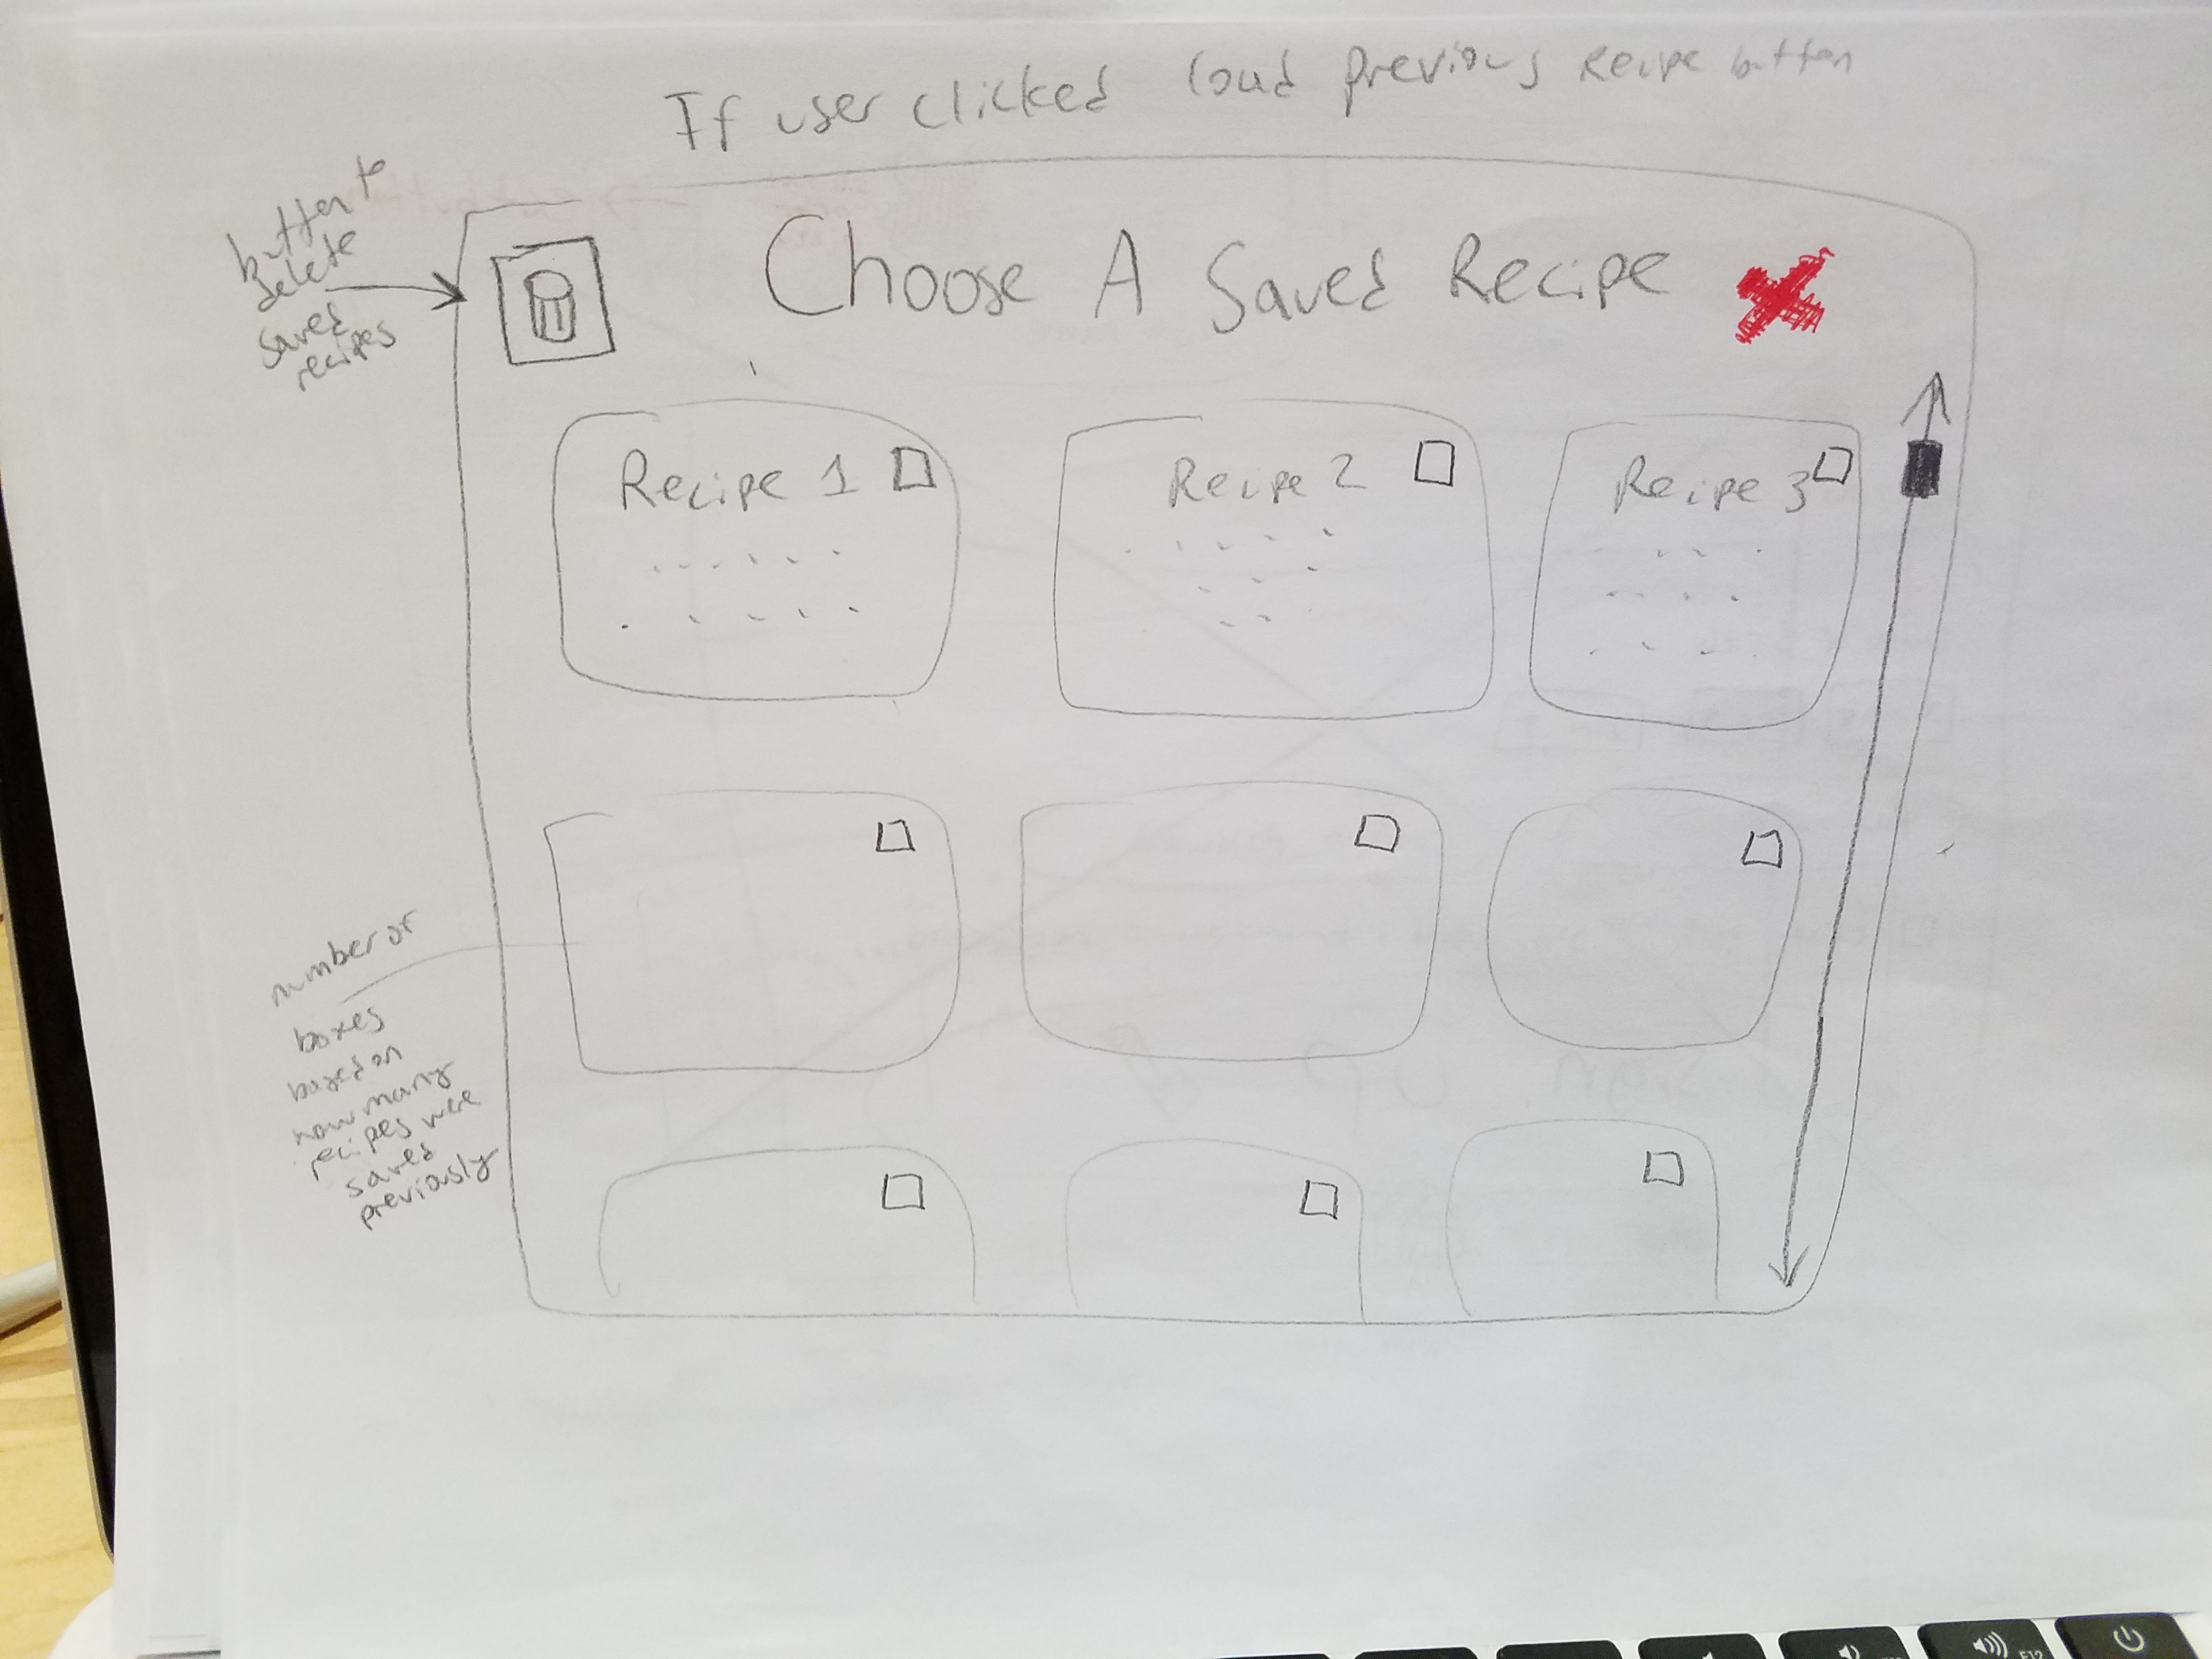 If user clicked load previous Recipe button
button to
delete
saved
recipes
Choose A Saved Recipe
Recipe 1
Recipe 2
Recipe 3
number of
boxes
based on
how many
recipes were
saved
previously
F12